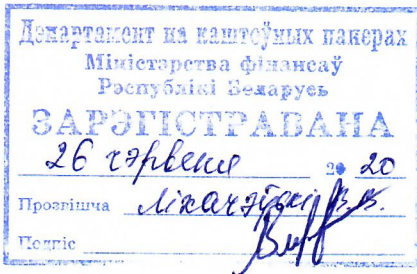 Дэпартамент па каштоўных паперах
Міністэрства фінансаў
Рэспублікі Беларусь
ЗАРЭГІСТРАВАНА
26 чэрвеня 2020
Прозвішча В.В.
Подпіс